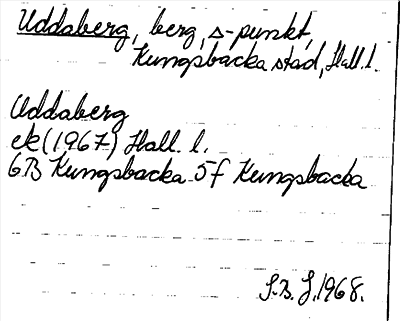 Uddaberg, berg, s-punkt,
Kungsbacka stad, Hall. l.
Uddaberg
ek (1967) Hall. l.
6B Kungsbacka 5f Kungsbacka
S.B. J. 1968.